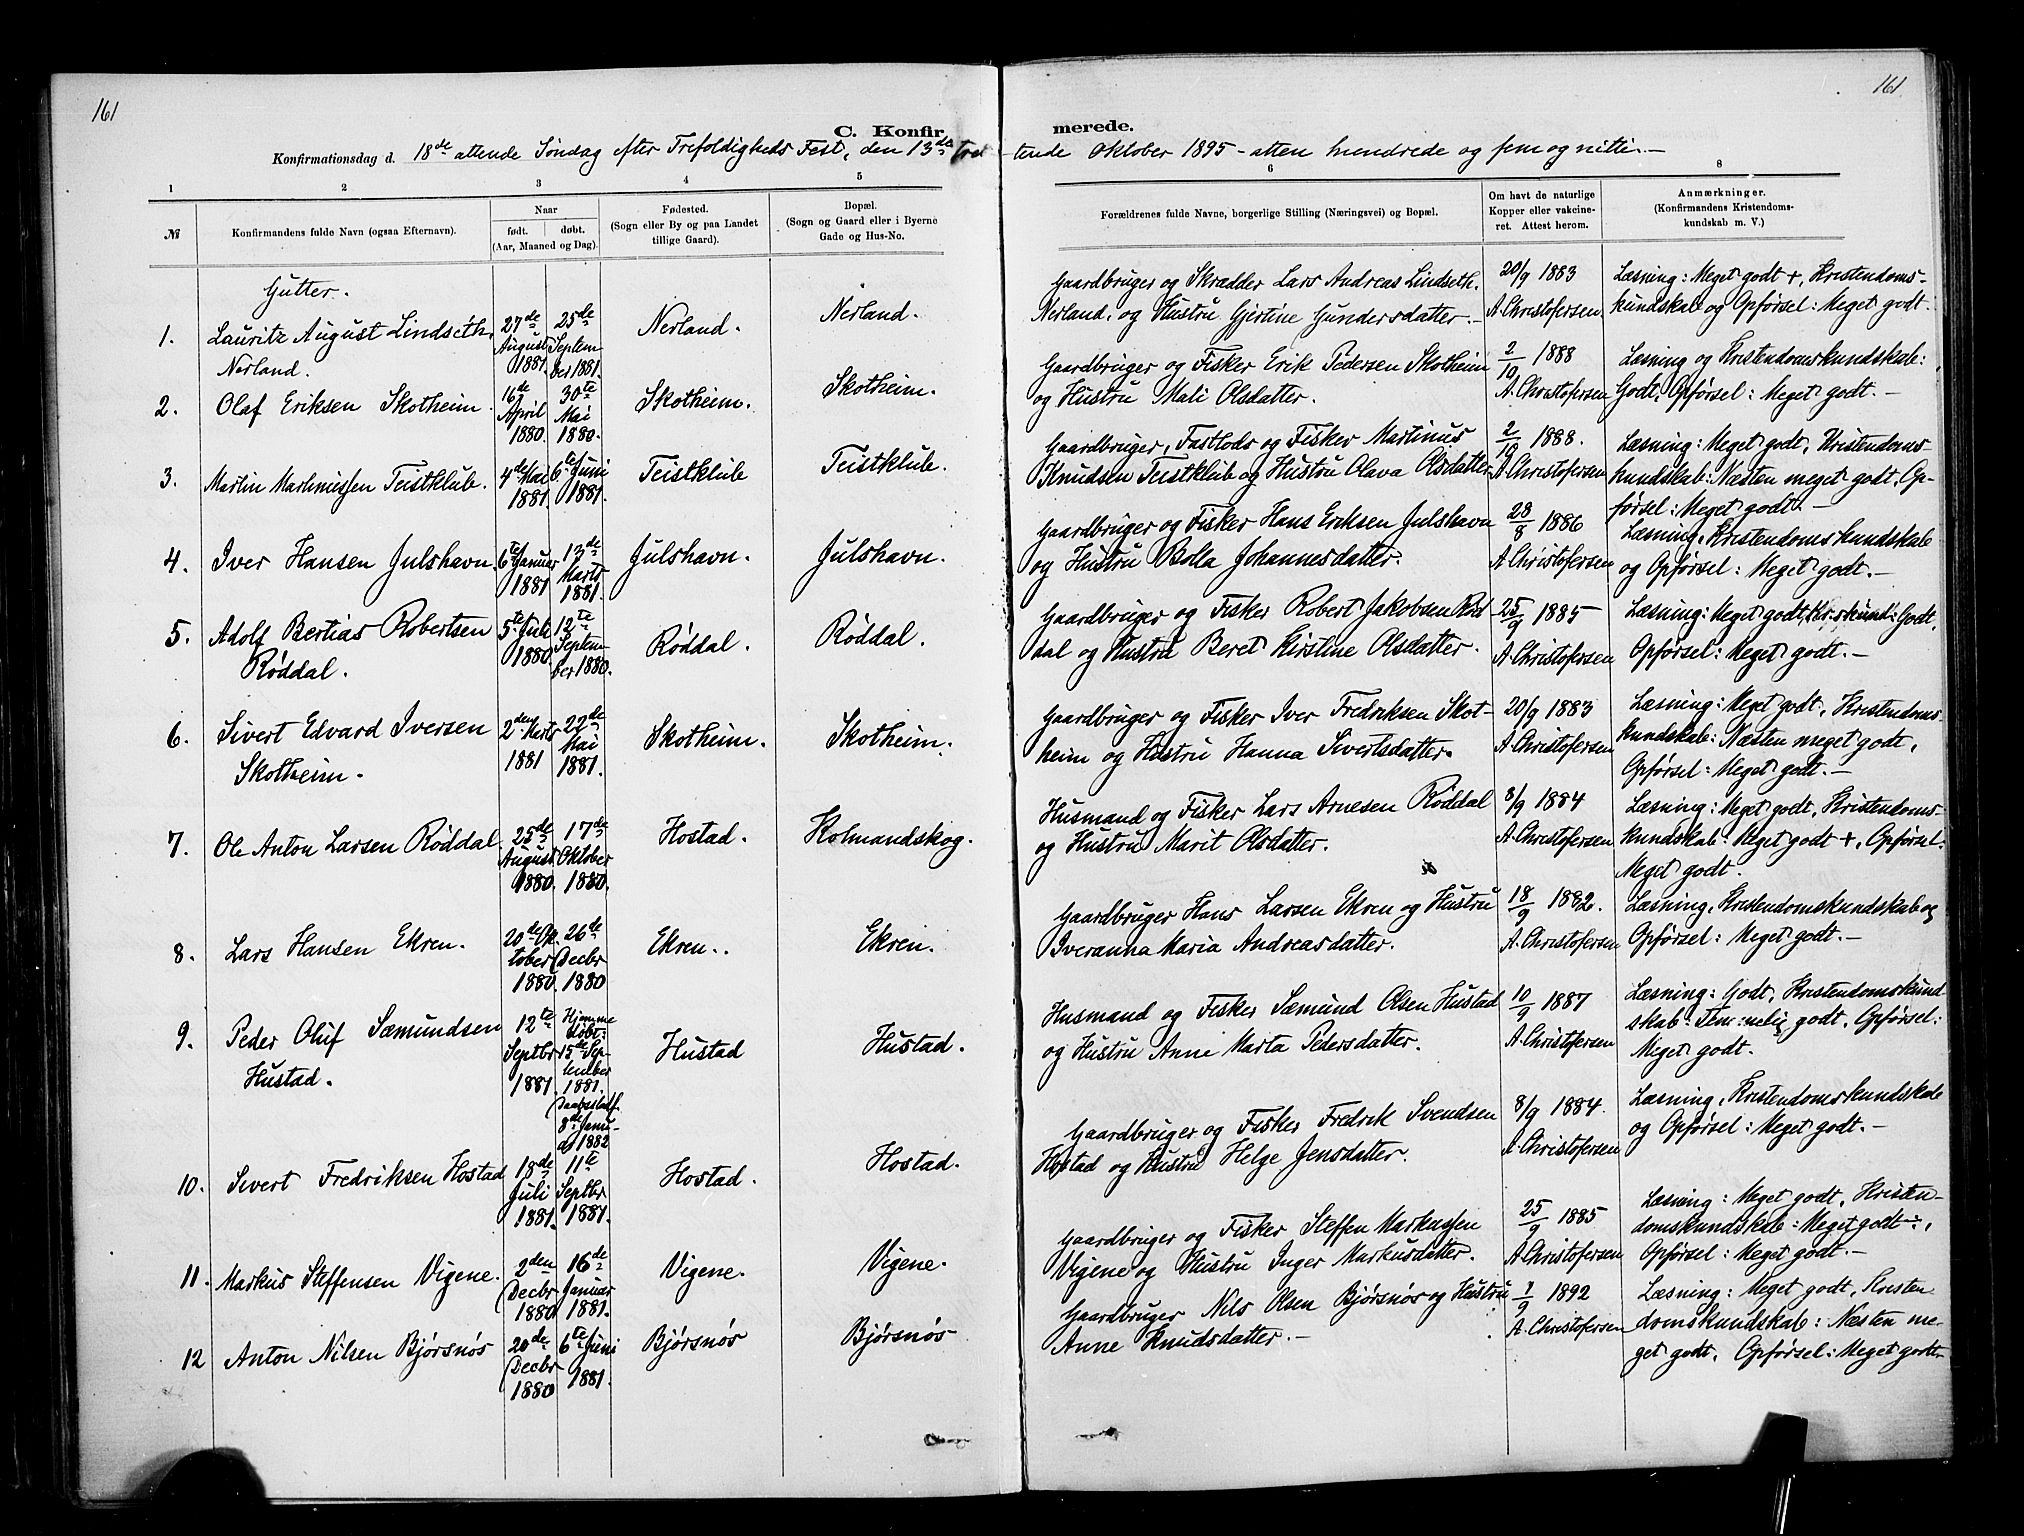 161
161
C. Konfirmerede.
Konfirmationsdag d. 18de attende Søndag efter Trefoldigheds Fest, den 13de tret-tende Oktober 1895 - atten hundrede og fem og nitti. -
1 2 3 4 5 6 8
№
Konfirmandens fulde Navn (ogsaa Efternavn).
Naar
født. døbt.
(Aar, Maaned og Dag).
Fødested.
(Sogn eller By og paa Landet
tillige Gaard).
Bopæl.
(Sogn og Gaard eller i Byerne
Gade og Hus-No.
Forældrenes fulde Navne, borgerlige Stilling (Næringsvei) og Bopæl.
Om havt de naturlige
Kopper eller vakcine-
ret. Attest herom.
Anmærkninger.
(Konfirmandens Kristendoms-
kundskab m. V.)
Gutter.
1. Lauritz August Lindseth
Nerland.
27de
August
1881.
25de
Septem
ber 1881.
Nerland.
Nerland.
Gaardbruger og Skrædder Lars Andreas Lindseth
Nerland, og Hustru Gjertine Gundersdatter. -
20/9 1883
A. Christofersen
Læsning: Meget godt +, Kristendoms-
kundskab og Opførsel: Meget godt.
2. Olaf Eriksen Skotheim.
16de
April
1880.
30te
Mai
1880.
Skotheim.
Skotheim.
Gaardbruger og Fisker Erik Pedersen Skotheim
og Hustru Mali Olsdatter.
2/10 1888
A. Christofersen
Læsning og Kristendomskundskab:
Godt, Opførsel: Meget godt. -
3. Martin Martinussen Teistklub.
4de Mai
1881.
6te Juni
1881.
Teistklub
Teistklub.
Gaardbruger, Fastlods og Fisker Martinus
Knudsen Teistklub og Hustru Olava Olsdatter
2/10 1888.
A. Christofersen
Læsning: Meget godt, Kristendoms-
kundskab: Næsten meget godt, Op-
førsel: Meget godt. -
4. Iver Hansen Julshavn.
6te Januar
1881
13de
Marts
1881.
Julshavn.
Julshavn.
Gaardbruger og Fisker Hans Eriksen Julshavn
og Hustru Bolla Johannesdatter.
28/8 1886
A. Christofersen
Læsning, Kristendomskundskab
og Opførsel: Meget godt. -
5. Adolf Bertias Robertsen
Røddal.
5te Juli
1880.
12te
Septem-
ber 1880.
Røddal.
Røddal.
Gaardbruger og Fisker Robert Jakobsen Rød
dal og Hustru Beret Kirstine Olsdatter.
25/9 1885
A. Christofersen
Læsning: Meget godt, Kr.skund: Godt,
Opførsel: Meget godt. -
6. Sivert Edvard Iversen
Skotheim.
2den Marts
1881
22de
Mai
1881.
Skotheim.
Skotheim.
Gaardbruger og Fisker Iver Fredriksen Skot-
heim og Hustru Hanna Sivertsdatter.
20/9 1883
A. Christofersen
Læsning: Meget godt, Kristendoms-
kundskab: Næsten meget godt,
Opførsel: Meget godt. -
7. Ole Anton Larsen Røddal
25de
August
1880.
17de
Oktober
1880.
Hostad.
Holmandskog.
Husmand og Fisker Lars Arnesen Røddal
og Hustru Marit Olsdatter.
8/9 1884
A. Christofersen
Læsning: Meget godt, Kristendoms-
kundskab: Meget godt +, Opførsel.
Meget godt.
8. Lars Hansen Ekren.
20de Ok
tober
1880.
26de
Decbr
1880
Ekren.
Ekren.
Gaardbruger Hans Larsen Ekren og Hustru
Iveranna Maria Andreasdatter.
18/9 1882.
A. Christofersen
Læsning, Kristendomskundskab og
Opførsel: Meget godt. -
9. Peder Oluf Sæmundsen
Hustad.
12te
Septbr
1881.
Hjemme
døbt:
15de Sep-
tember
1881.
Daabsstadf.
8de Janu-
ar 1882
Hustad
Hustad.
Husmand og Fisker Sæmund Olsen Hustad
og Hustru Anne Marta Pedersdatter.
10/9 1887
A. Christofersen
Læsning: Godt, Kristendomskund
skab: Temmelig godt, Opførsel:
Meget godt.
10. Sivert Fredriksen Hostad
18de
Juli
1881.
11te
Septbr
1881.
Hostad.
Hostad.
Gaardbruger og Fisker Fredrik Svendsen
Hostad og Hustru Helge Jensdatter.
8/9 1884.
A. Christofersen
Læsning, Kristendomskundskab
og Opførsel: Meget godt. -
11. Markus Steffensen Vigene.
2den
Decbr
1880
16de
Januar
1881.
Vigene.
Vigene.
Gaardbruger og Fisker Steffen Markussen
Vigene og Hustru Inger Markusdatter.
25/9 1885
A. Christofersen
Læsning: Meget godt, Kristen-
domskundskab: Meget godt,
Opførsel: Meget godt. -
12 Anton Nilsen Bjørsnøs
20de
Decbr
1880
6te Juni
1881.
Bjørsnøs
Bjørsnøs
Gaardbruger Nils Olsen Bjørsnøs og Hustru
Anne Knudsdatter. -
1/9 1892
A. Christofersen
Læsning: Meget godt, Kristen
domskundskab: Næsten me-
get godt, Opførsel: Meget godt